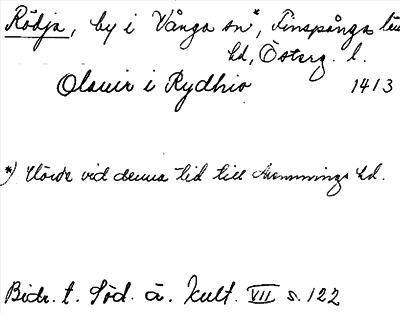 Rödja, by i Vånga sn*, Finspånga län
hd, Österg. l.
Olauir i Rydhio 1413
*) Hörde vid denna tid till hd.
Bidr. t. Söd. ä. Kult. VII s. 122